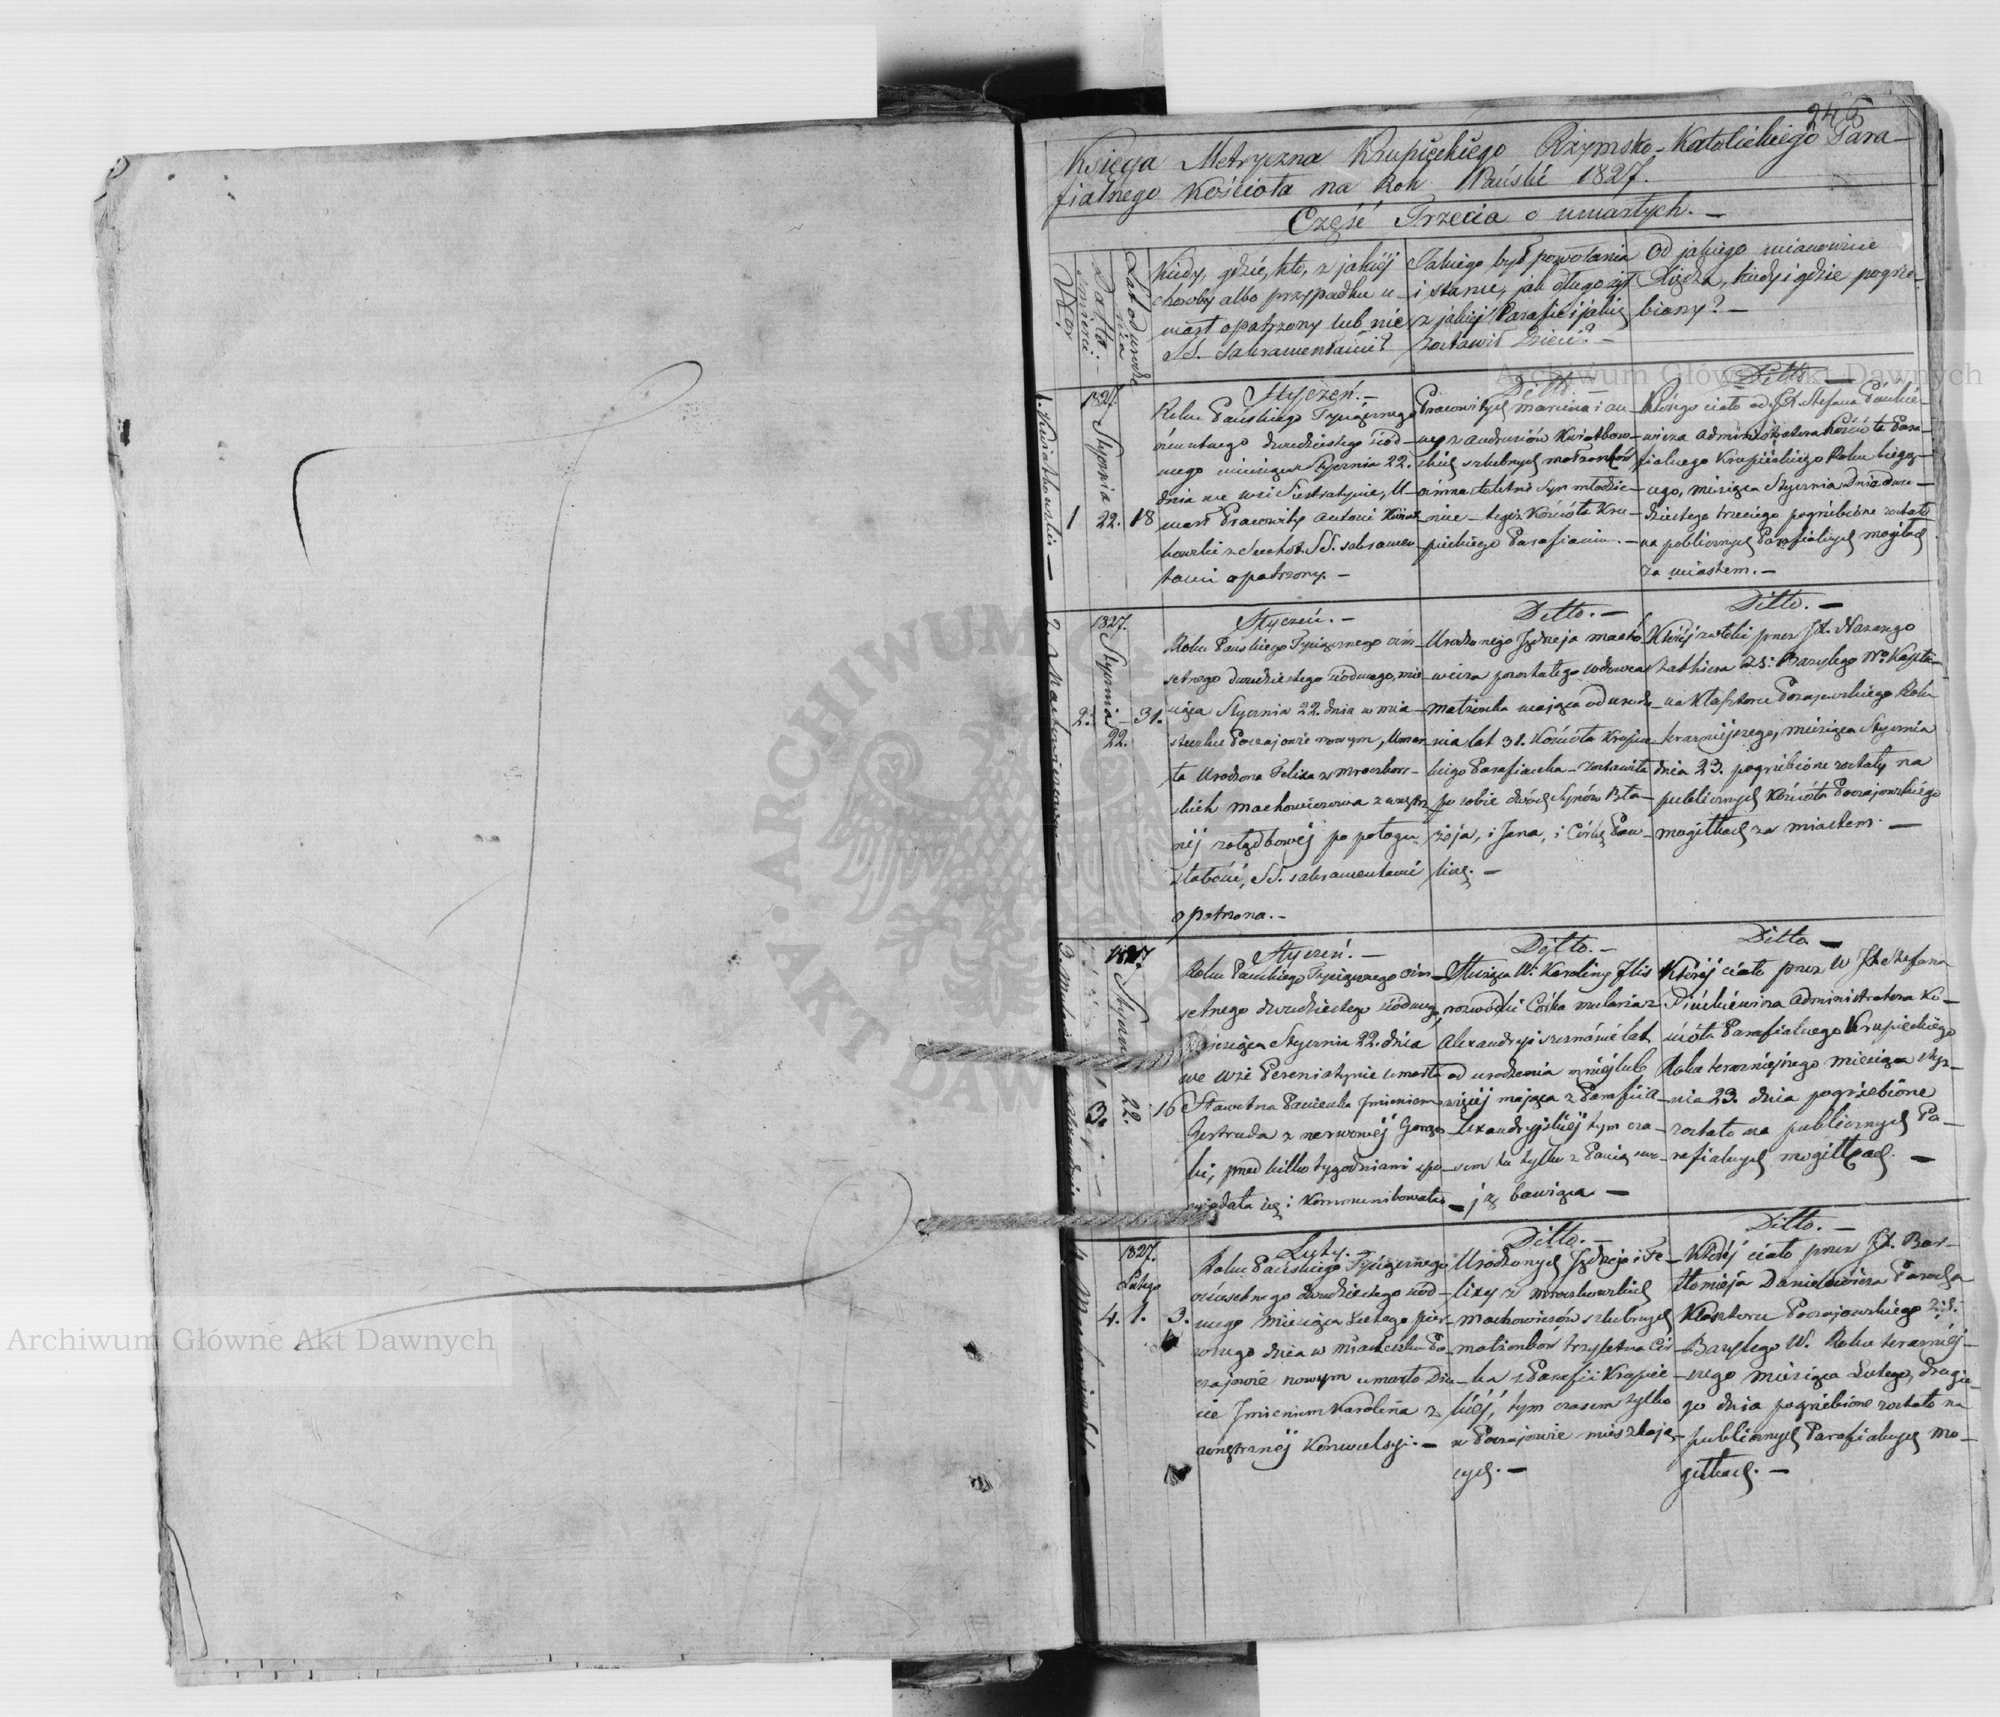 245
Księga Metryczna Krupieckiego Rzymsko-Katolickiego Para-
fialnego Kościoła na Rok Pański 1827.
Część Trzecia o umarłych. —
Nror
Datto: śmierci —
Lat od urodzenia
Kiedy, gdzie, kto, z jakiéj
choroby albo przypadku u-
marł opatrzony lub nie
SS. Sakramentami?
Jakiego był powołania
i stanu, jak długo żył
z jakiéj Parafii i jakie
zostawił Dzieci? —
Od jakiego mianowicie
Xiędza, kiedy i gdzie pogrze-
biony? —
1. Kwiatkowski —
1
1827.
Stycznia
22.
18
Styczeń. —
Roku Pańskiego Tysiącznego
ósmsetnego dwudziestego siód-
mego miesiąca Stycznia 22.
dnia we wsi Siestratynie, U-
marł Pracowity Antoni Kwiat-
kowski z Suchot SS. sakramen-
tami opatrzony. —
Ditto. —
Pracowitych Marcina i An-
ny z Kwiatkow-
skich szlubnych małżonków
ośmnastoletni Syn młodzie-
niec — tegoż Kościoła Kru-
pieckiego Parafianin. —
Ditto. —
Którego ciało od JX. Stefana
Administratora Kościoła Para-
fialnego Krupieckiego Roku bieżą-
cego, miesiąca Stycznia Dnia dwu-
dziestego trzeciego pogrzebione zostało
na publicznych Parafialnych mogiłach
za miastem. —
2. Machowiczowa —
2.
1827.
Stycznia
22.
31.
Styczeń. —
Roku Pańskiego Tysiącznego óśm-
setnego dwudziestego siódmego, mie-
siąca Stycznia 22. dnia w mia-
steczku Poczajowie nowym, Umar-
ła Urodzona Felixa z Mroczkow-
skich Machowiczowa z wnętrz-
néj żołądkowéj po połogu
słabości, SS. sakramentami
opatrzona. —
Ditto. —
Urodzonego Jędrzeja Macho-
wicza pozostałego wdowca
małżonka mająca od urodze-
nia lat 31. Kościoła Krupie-
ckiego Parafianka — zostawiła
po sobie dwóch Synów Bła-
żeja, i Jana, i Córkę Pau-
linę. —
Ditto. —
Któréj zwłoki przez JX. Nazarego
ZS: Bazylego Wo. Kapła-
na Klasztoru Poczajowskiego Roku
teraźniejszego, miesiąca Stycznia
dnia 23. pogrzebione zostały na
publicznych Kościoła Poczajowskiego
mogiłkach za miastem. —
3.
1827
Styczn.
22.
16
Styczeń. —
Roku Pańskiego Tysiącznego óśm-
setnego dwudziestego siódmego,
miesiąca Stycznia 22. dnia
we wsi Pereniatynie umarła
Sławetna Panienka Jmieniem
Gertruda z nerwowéj Gorącz-
ki, przed kilko tygodniami spo-
wiadała się i Kommunikowała
Ditto. —
Służąca W: Karoliny Jlis
rozwódki Córka mularza z
Alexandryi szesnaście lat
od urodzenia mniéj lub
więcéj mająca z Parafii A-
lexandryjskiéj tym cza-
sem tu tylko z Panią swo-
ją bawiąca —
Ditto —
Któréj ciało przez W JX. Stefana
Administratora Ko-
ścioła Parafialnego Krupieckiego
Roku teraźniejszego miesiąca stycz-
nia 23. dnia pogrzebione
zostało na publicznych Pa-
rafialnych mogiłkach. —
4. Machowiczówna
4.
1827.
Lutego
1.
3.
Luty. —
Roku Pańskiego Tysiącznego
óśmsetnego dwudziestego siód-
mego Miesiąca Lutego pier-
wszego dnia w Miasteczku Po-
czajowie nowym umarło Dzie-
cie Jmieniem Karolina z
wnętrznéj Konwulsyi. —
Ditto. —
Urodzonych Jędrzeja i Fe-
lixy z Mroczkowskich
Machowiczów szlubnych
małżonków trzyletnia Cór-
ka z Parafii Krupie-
ckiéj, tym czasem tylko
w Poczajowie mieszkają-
cych. —
Ditto. —
Któréj ciało przez JX. Bar-
tłomieja Danielewicza Parocha
Klasztoru Poczajowskiego
Bazylego W. Roku teraźniéj-
szego miesiąca Lutego, drugie-
go dnia pogrzebione zostało na
publicznych Parafialnych mo-
giłkach. —
Archiwum Główne Akt Dawnych
Archiwum Główne Akt Dawnych